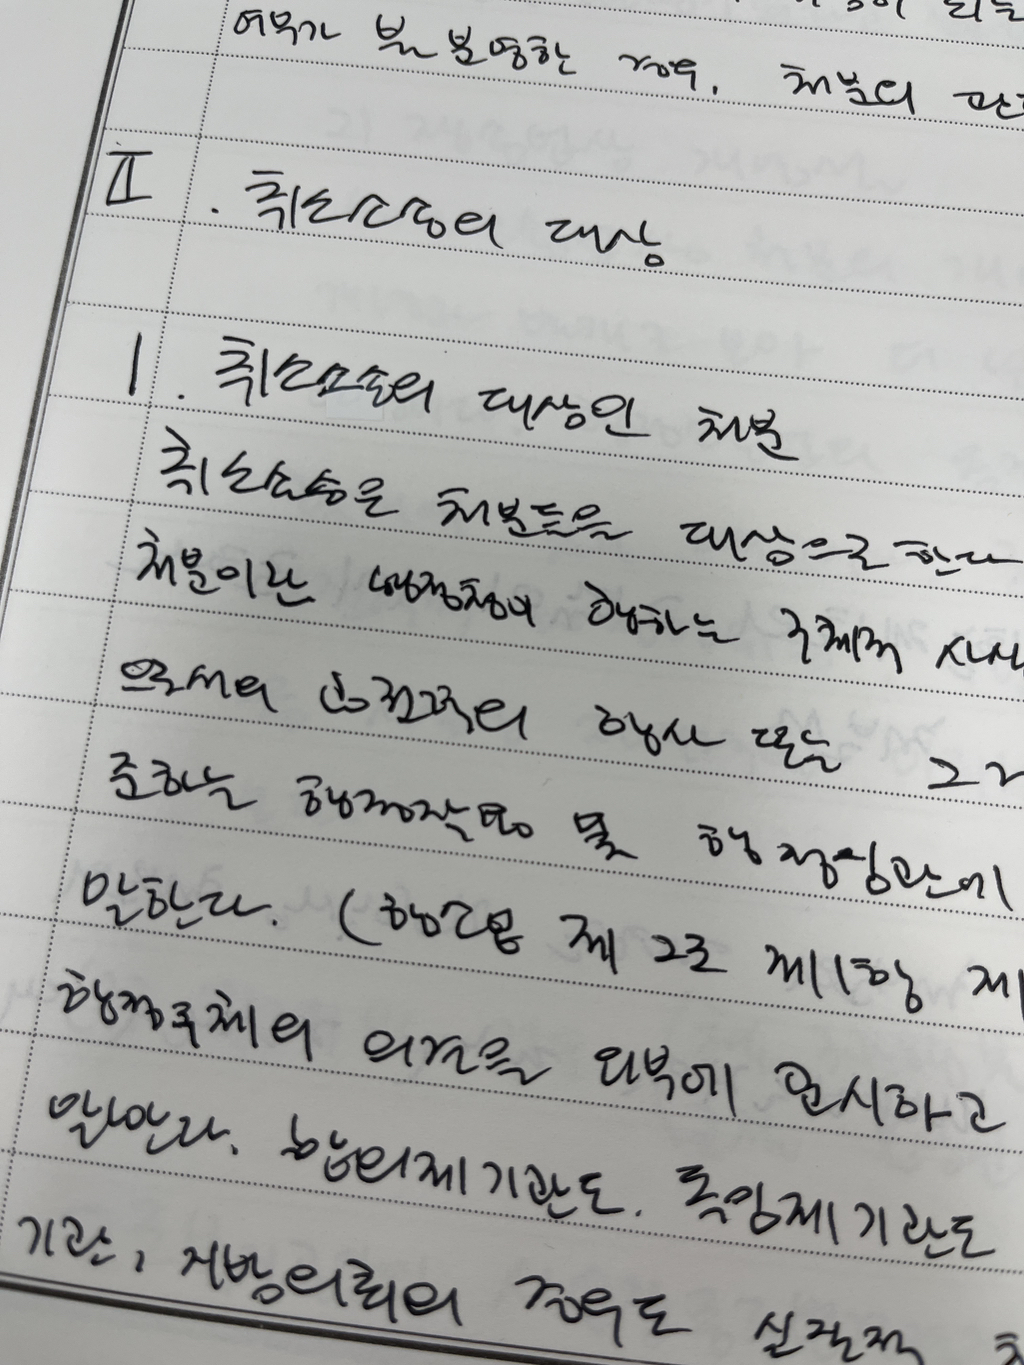 여부가 불분명한 경우. 처분의
Ⅱ. 취소소송의 대상
1. 취소소송의 대상인 처분
취소소송은 처분등을 대상으로 한다
처분이란 행정청이 행하는 구체적 사실
으로서의 공권력의 행사 또는 그 거
준하는 행정작용 및 행정심판에
말한다. (행소법 제2조 제1항 제
행정주체의 의견을 외부에 표시하고
말한다. 합의제기관도. 독임제기관도
기관, 지방의회의 경우도 실질적